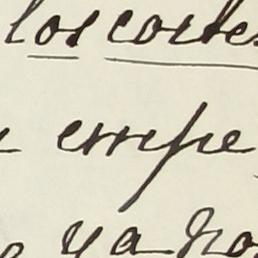 los cortes
empe
ya no